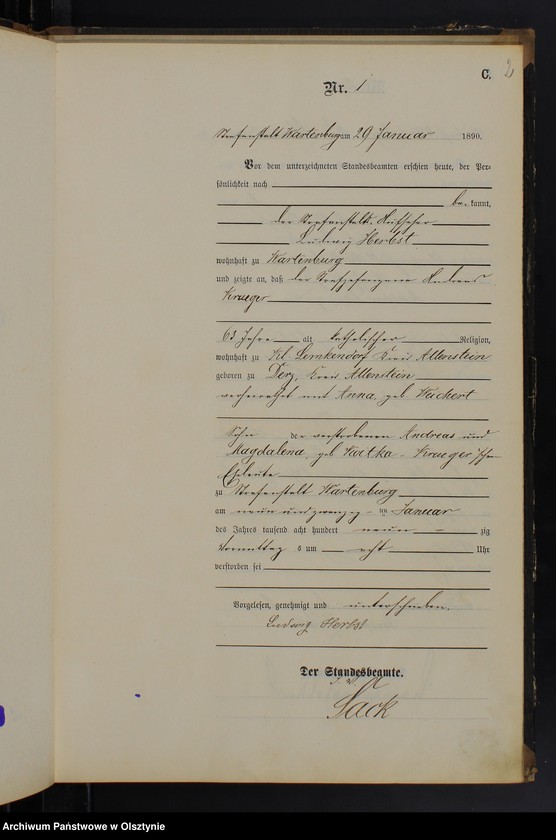 C. 2
Nr. 1
Strafanstalt Wartenburg am 29 Januar 1890.
Vor dem unterzeichneten Standesbeamten erschien heute, der Per-
sönlichkeit nach
be kannt,
der Strafanstalts-Aufseher
Ludwig Herbst
wohnhaft zu Wartenburg
und zeigte an, daß der Strafgefangene Andreas
Krueger
63 Jahre alt katholischer Religion,
wohnhaft zu Kl. Lemkendorf Kreis Allenstein
geboren zu Derz, Kreis Allenstein
verheirathet mit Anna, geb. Weichert
Sohn der verstorbenen Andreas und
Magdalena, geb. - Krueger'schen
Eheleute
zu Strafanstalt Wartenburg
am neun und zwanzig - ten Januar
des Jahres tausend acht hundert neun - zig
Vormittag s um acht Uhr
verstorben sei
Vorgelesen, genehmigt und unterschrieben.
Ludwig Herbst
Der Standesbeamte.
Sack
Archiwum Państwowe w Olsztynie